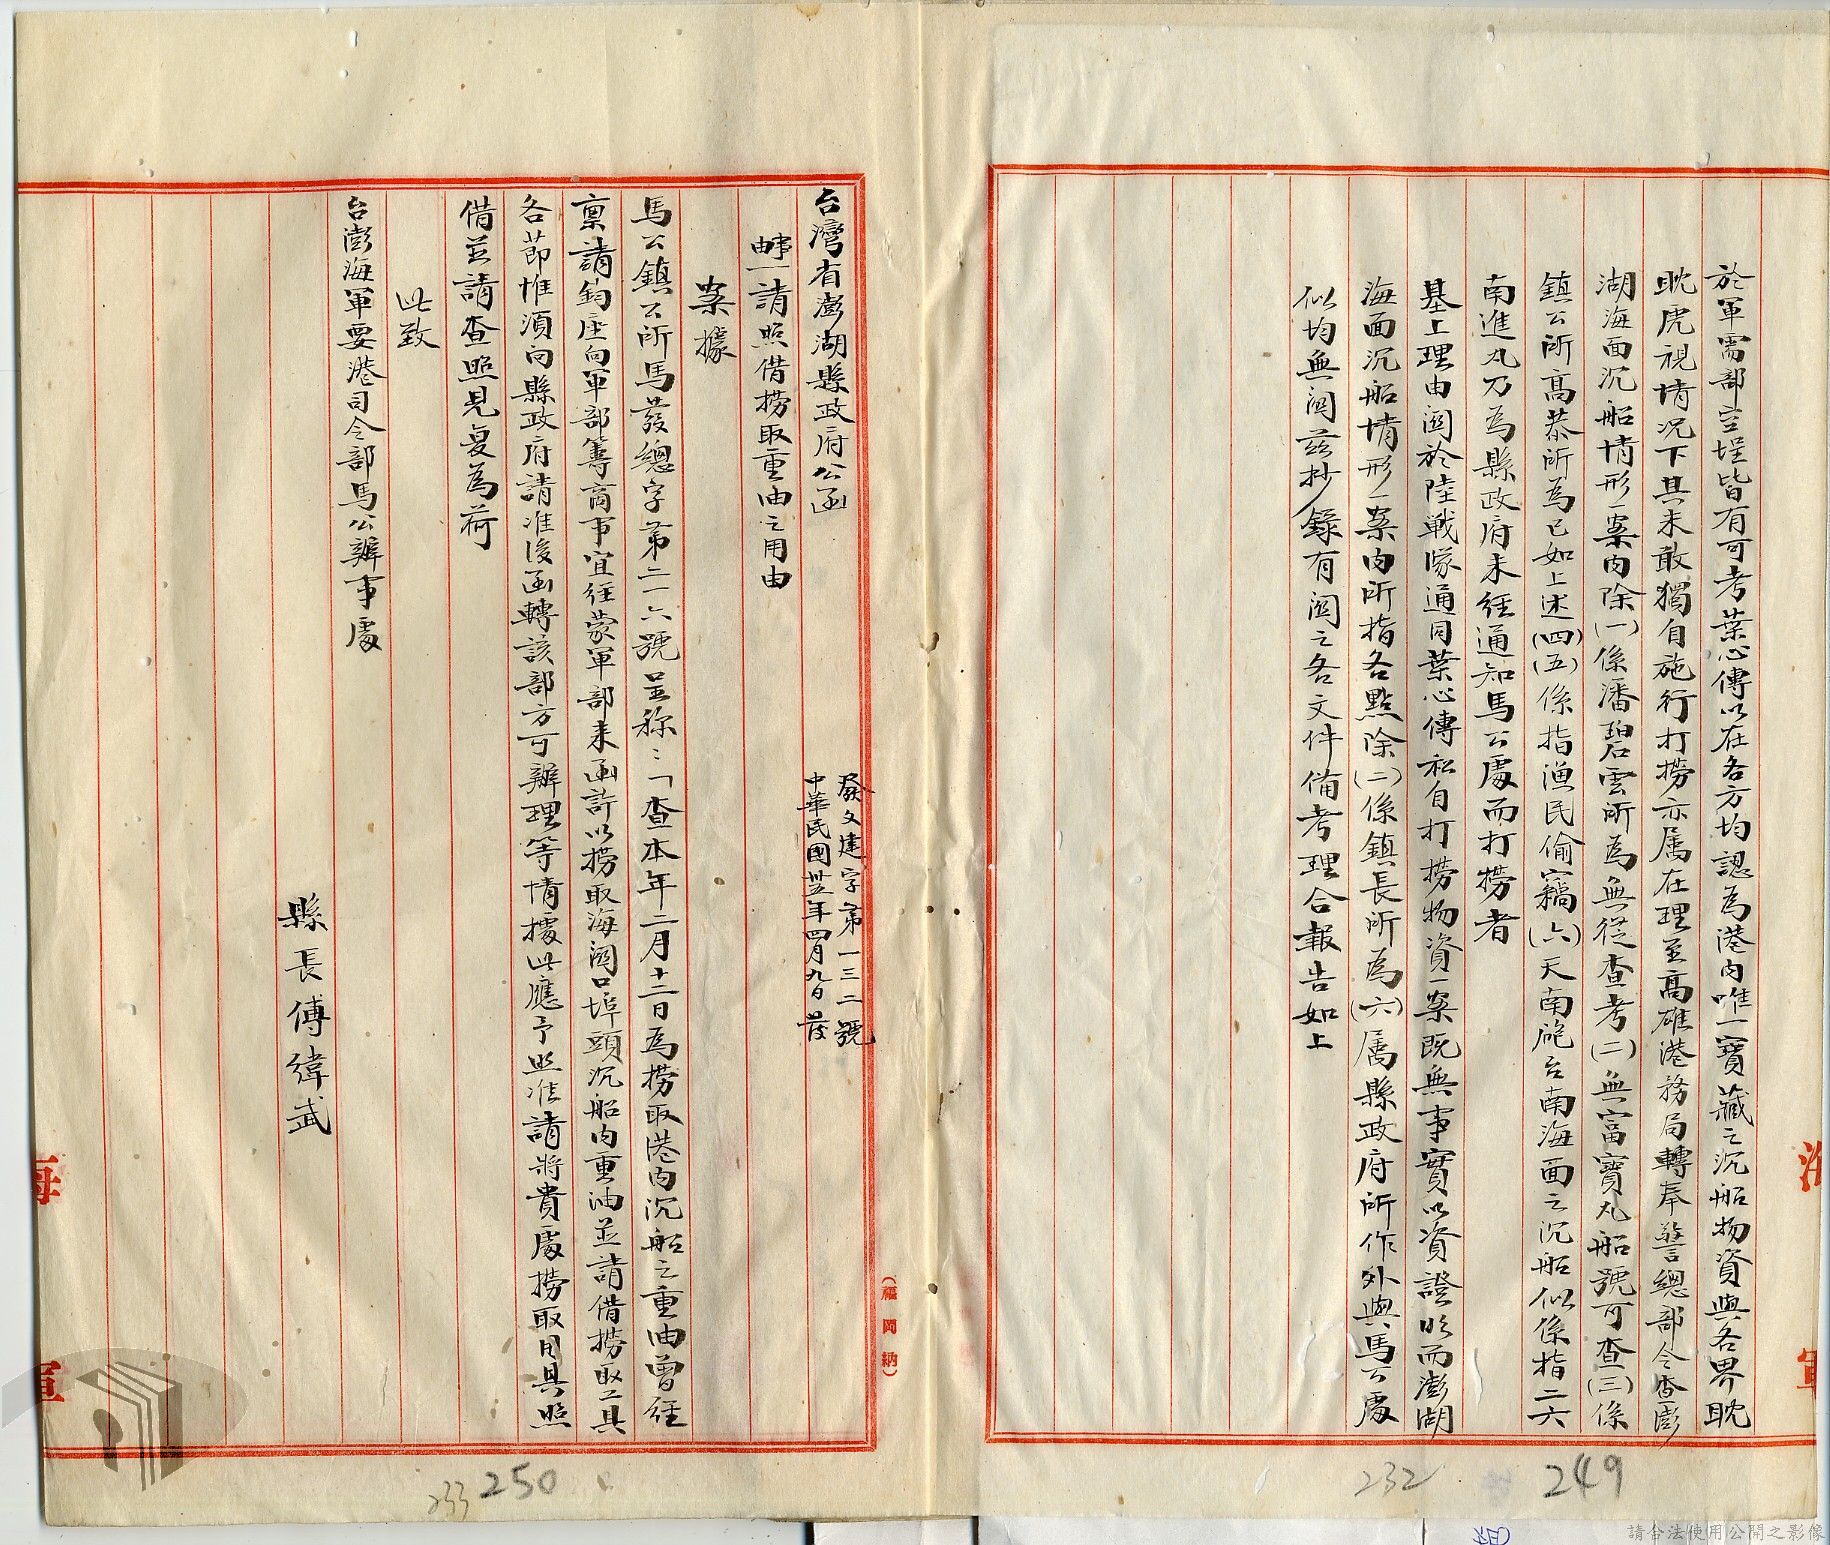 於軍需部言埕皆有可考葉心傳以在各方均認為港內唯一寶藏之沉船物資與各界眈
眈虎視情況下其未敢獨自施行打撈亦屬在理至高雄港務局轉奉警總部令查澎
湖海面沉船情形一案內除(一)係潘碧雲所為無從查考(二)無富寶丸船號可查(三)係
鎮公所高恭所為已如上述(四)(五)係指漁民偷竊(六)天南砲台南海面之沉船似係指二六
南進丸乃為縣政府未經通知馬公處而打撈者
基上理由関於陸戰隊通同葉心傳私自打撈物資一案既無事實以資證明而澎湖
海面沉船情形一案內所指各點除(二)係鎮長所為(六)屬縣政府所作外與馬公處
似均無関茲抄錄有関之各文件備考理合報告如上
232 249
台灣省澎湖縣政府公函
發文建字第一三二號
中華民國卅五年四月九日發
事由一請照借撈取重油之用由
案據
馬公鎮公所馬發總字第二一六號呈称:「查本年二月十三日為撈取港內沉船之重油曾經
稟請鈞座向軍部籌商事宜經蒙軍部来函許以撈取海関口埠頭沉船內重油並請借撈取工具
各節惟須向縣政府請准後函轉該部方可辦理等情據此應予照准請將貴處撈取用具照
借並請查照見复為荷
此致
台澎海軍要港司令部馬公辦事處
縣長傅緯武
(福岡納)
海
軍
海
軍
233 250
請合法使用公開之影像